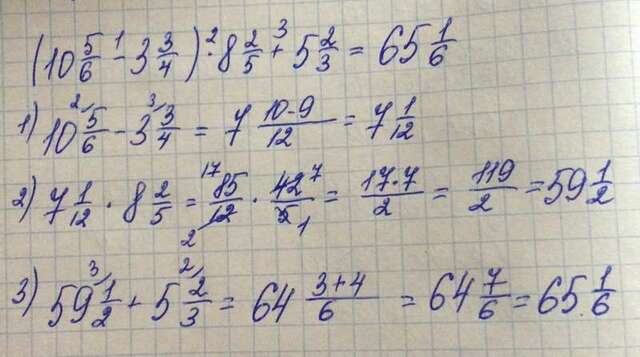 (10 5/6 -¹ 3 3/4) ·² 8 2/5 +³ 5 2/3 = 65 1/6
1) 10 ²⁄5/6 - 3 ³⁄3/4 = 7 (10-9)/12 = 7 1/12
2) 7 1/12 · 8 2/5 = ¹⁷85/12₂ · 42⁷/5₁ = 17·7/2 = 119/2 = 59 1/2
3) 59 ³⁄1/2 + 5 ²⁄2/3 = 64 (3+4)/6 = 64 7/6 = 65 1/6